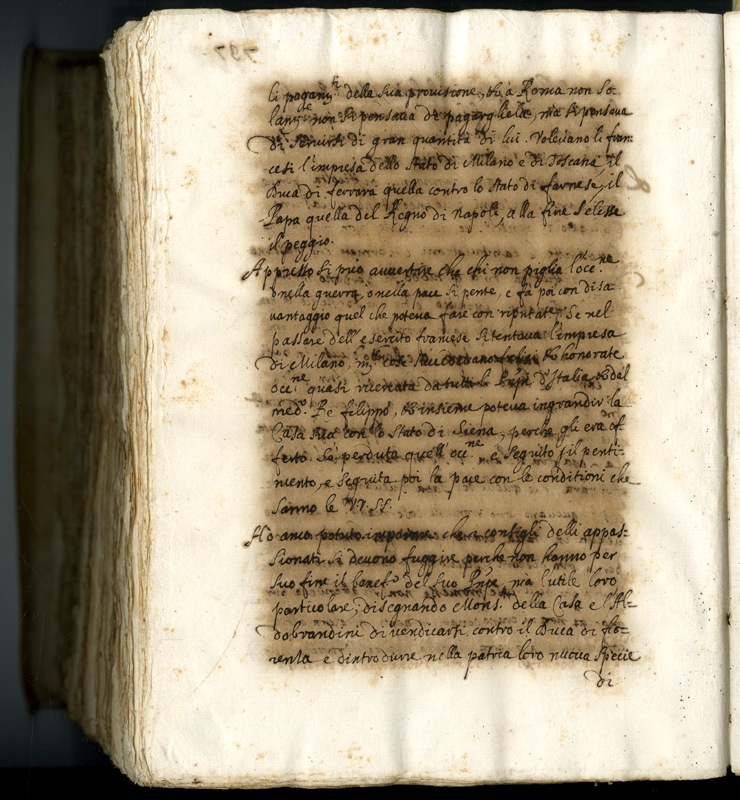 li pagam.ti della sua provisione, et à Roma non so-
lam.te non si pensava di pagargliele, ma si pensava
di servirsi di gran quantità di lui. Volevano li fran-
cesi l'impresa dello Stato di Milano e di Toscana, il
Duca di ferrara quella contro lo Stato di farnese, il
Papa quella del Regno di Napoli, alla fine s'elesse
il peggio.
Appresso si può avvertire che chi non piglia l'occ.ne
ò nella guerra, ò nella pace si pente, e fà poi con disa-
vantaggio quel che poteva fare con riputat.e Se nel
passare dell'esercito franzese si tentava l'impresa
di Milano, et honorate
occ.ne quasi ricercata da tutti li Prnpi d'Italia, et dal
med.o Re filippo, et insieme poteva ingrandir la
Casa sua con lo Stato di Siena, perche gli era of-
ferto. Se perduta quell'occ.ne è seguito il penti-
mento, e seguita poi la pace con le conditioni che
sanno le VV. SS.
Hò anco potuto imparare che i consigli delli appas-
sionati si devono fuggire perche non hanno per
suo fine il benef.o del suo Pnpe, ma l'utile loro
particolare; disegnando Mons. della Casa e l'Al-
dobrandini di vendicarsi contro il Duca di fio-
renza e d'introdurre nella patria loro nuova specie
di